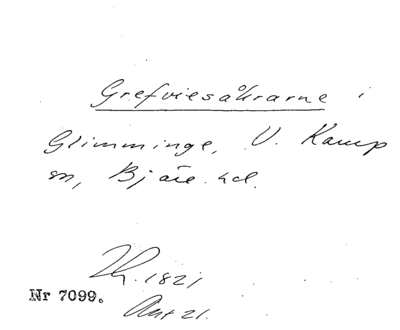 Grefviesåkrarne i
Glimminge, V. Karup
sn, Bjäre hd.
1821
Nr 7099.
Akt 21.